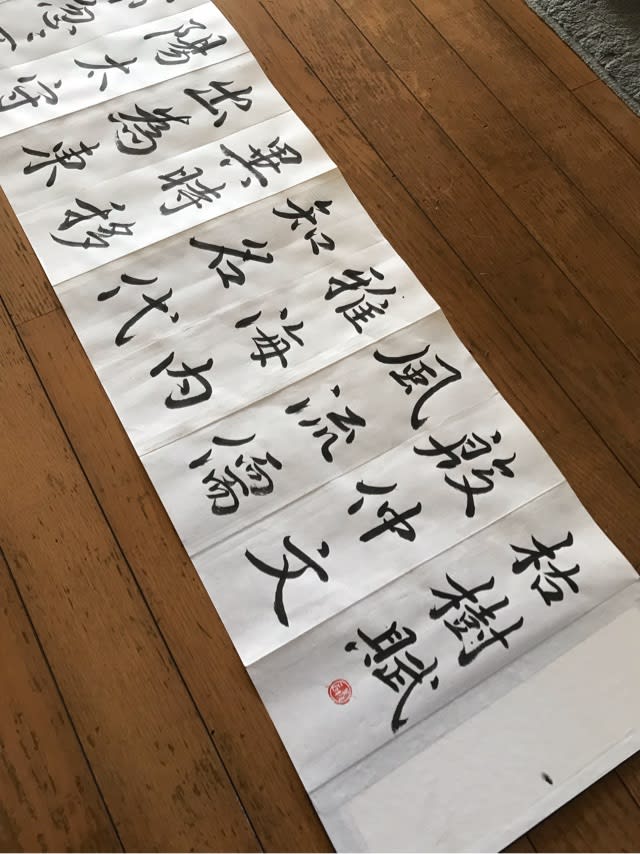 枯樹賦
殷仲文
風流儒
雅海内
知名代
異時移
出為東
陽太守
忽